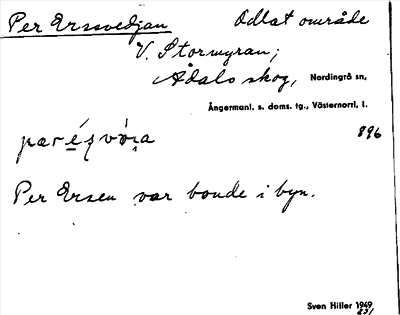 Per Erssvedjan Odlat område
V. Stormyran;
Ådals skog, Nordingrå sn,
Ångermanl. s. doms. tg., Västernorrl. l.
896
Per Ersen var bonde i byn.
Sven Hiller 1949